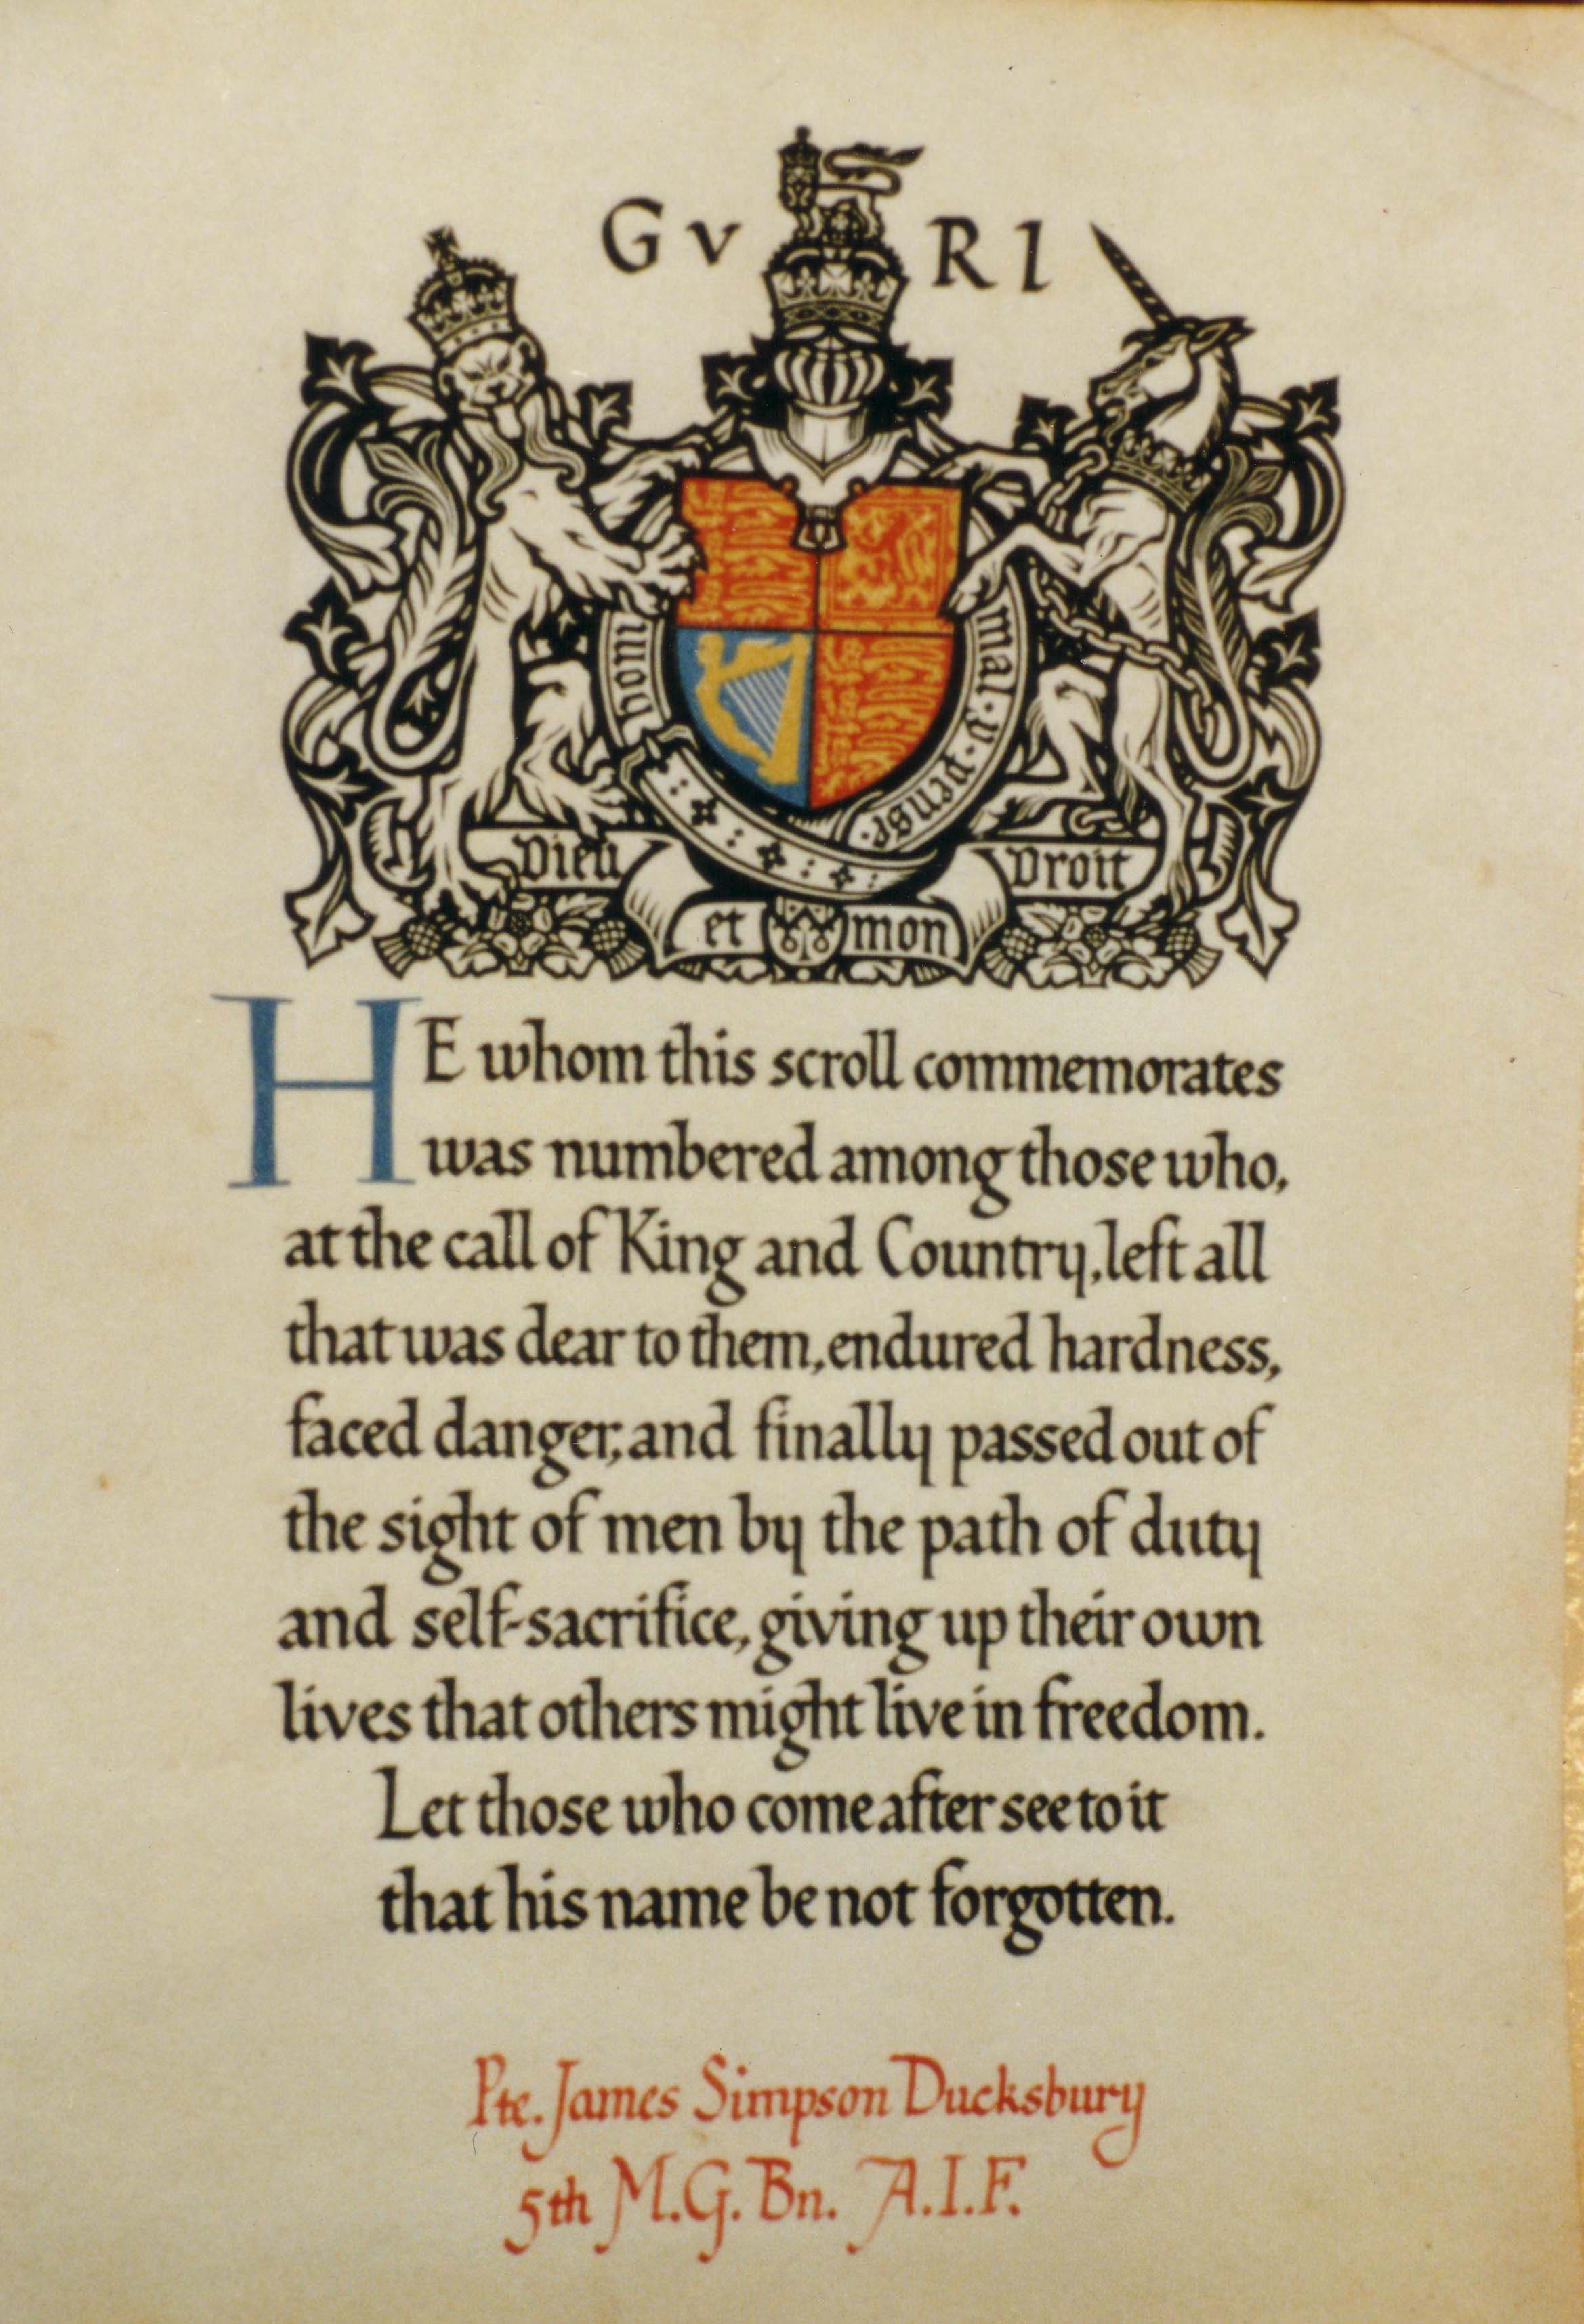 GV RI
honi
mal·y·pense·
Dieu
Droit
et mon
HE whom this scroll commemorates
was numbered among those who,
at the call of King and Country, left all
that was dear to them, endured hardness,
faced danger, and finally passed out of
the sight of men by the path of duty
and self-sacrifice, giving up their own
lives that others might live in freedom.
Let those who come after see to it
that his name be not forgotten.
Pte. James Simpson Ducksbury
5th M.G. Bn. A.I.F.